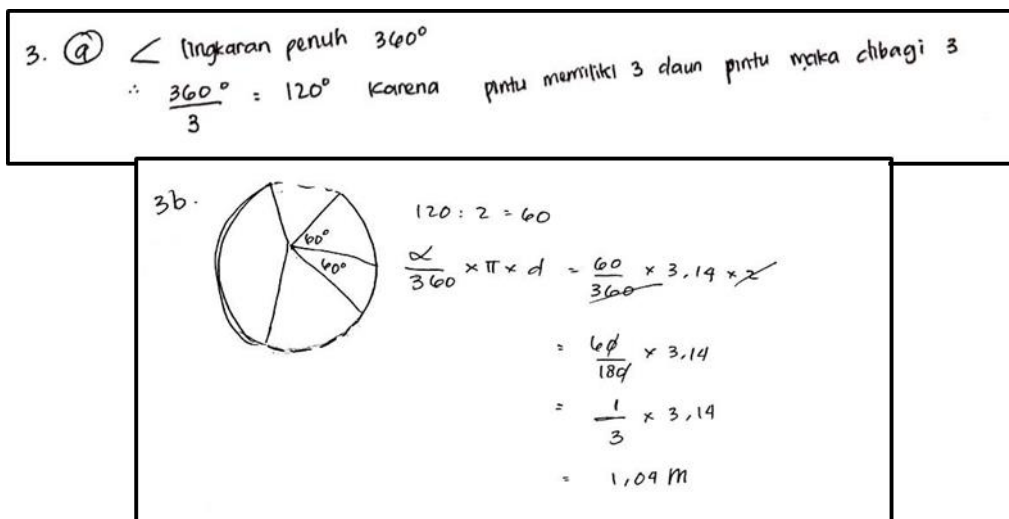 3. ⓐ ∠ lingkaran penuh 360°
∴ 360° / 3 = 120° Karena pintu memiliki 3 daun pintu maka dibagi 3
3b.
60°
60°
120 : 2 = 60
α / 360 × π × d = 60 / 360 × 3,14 × 2
= 60 / 180 × 3,14
= 1 / 3 × 3,14
= 1,04 m